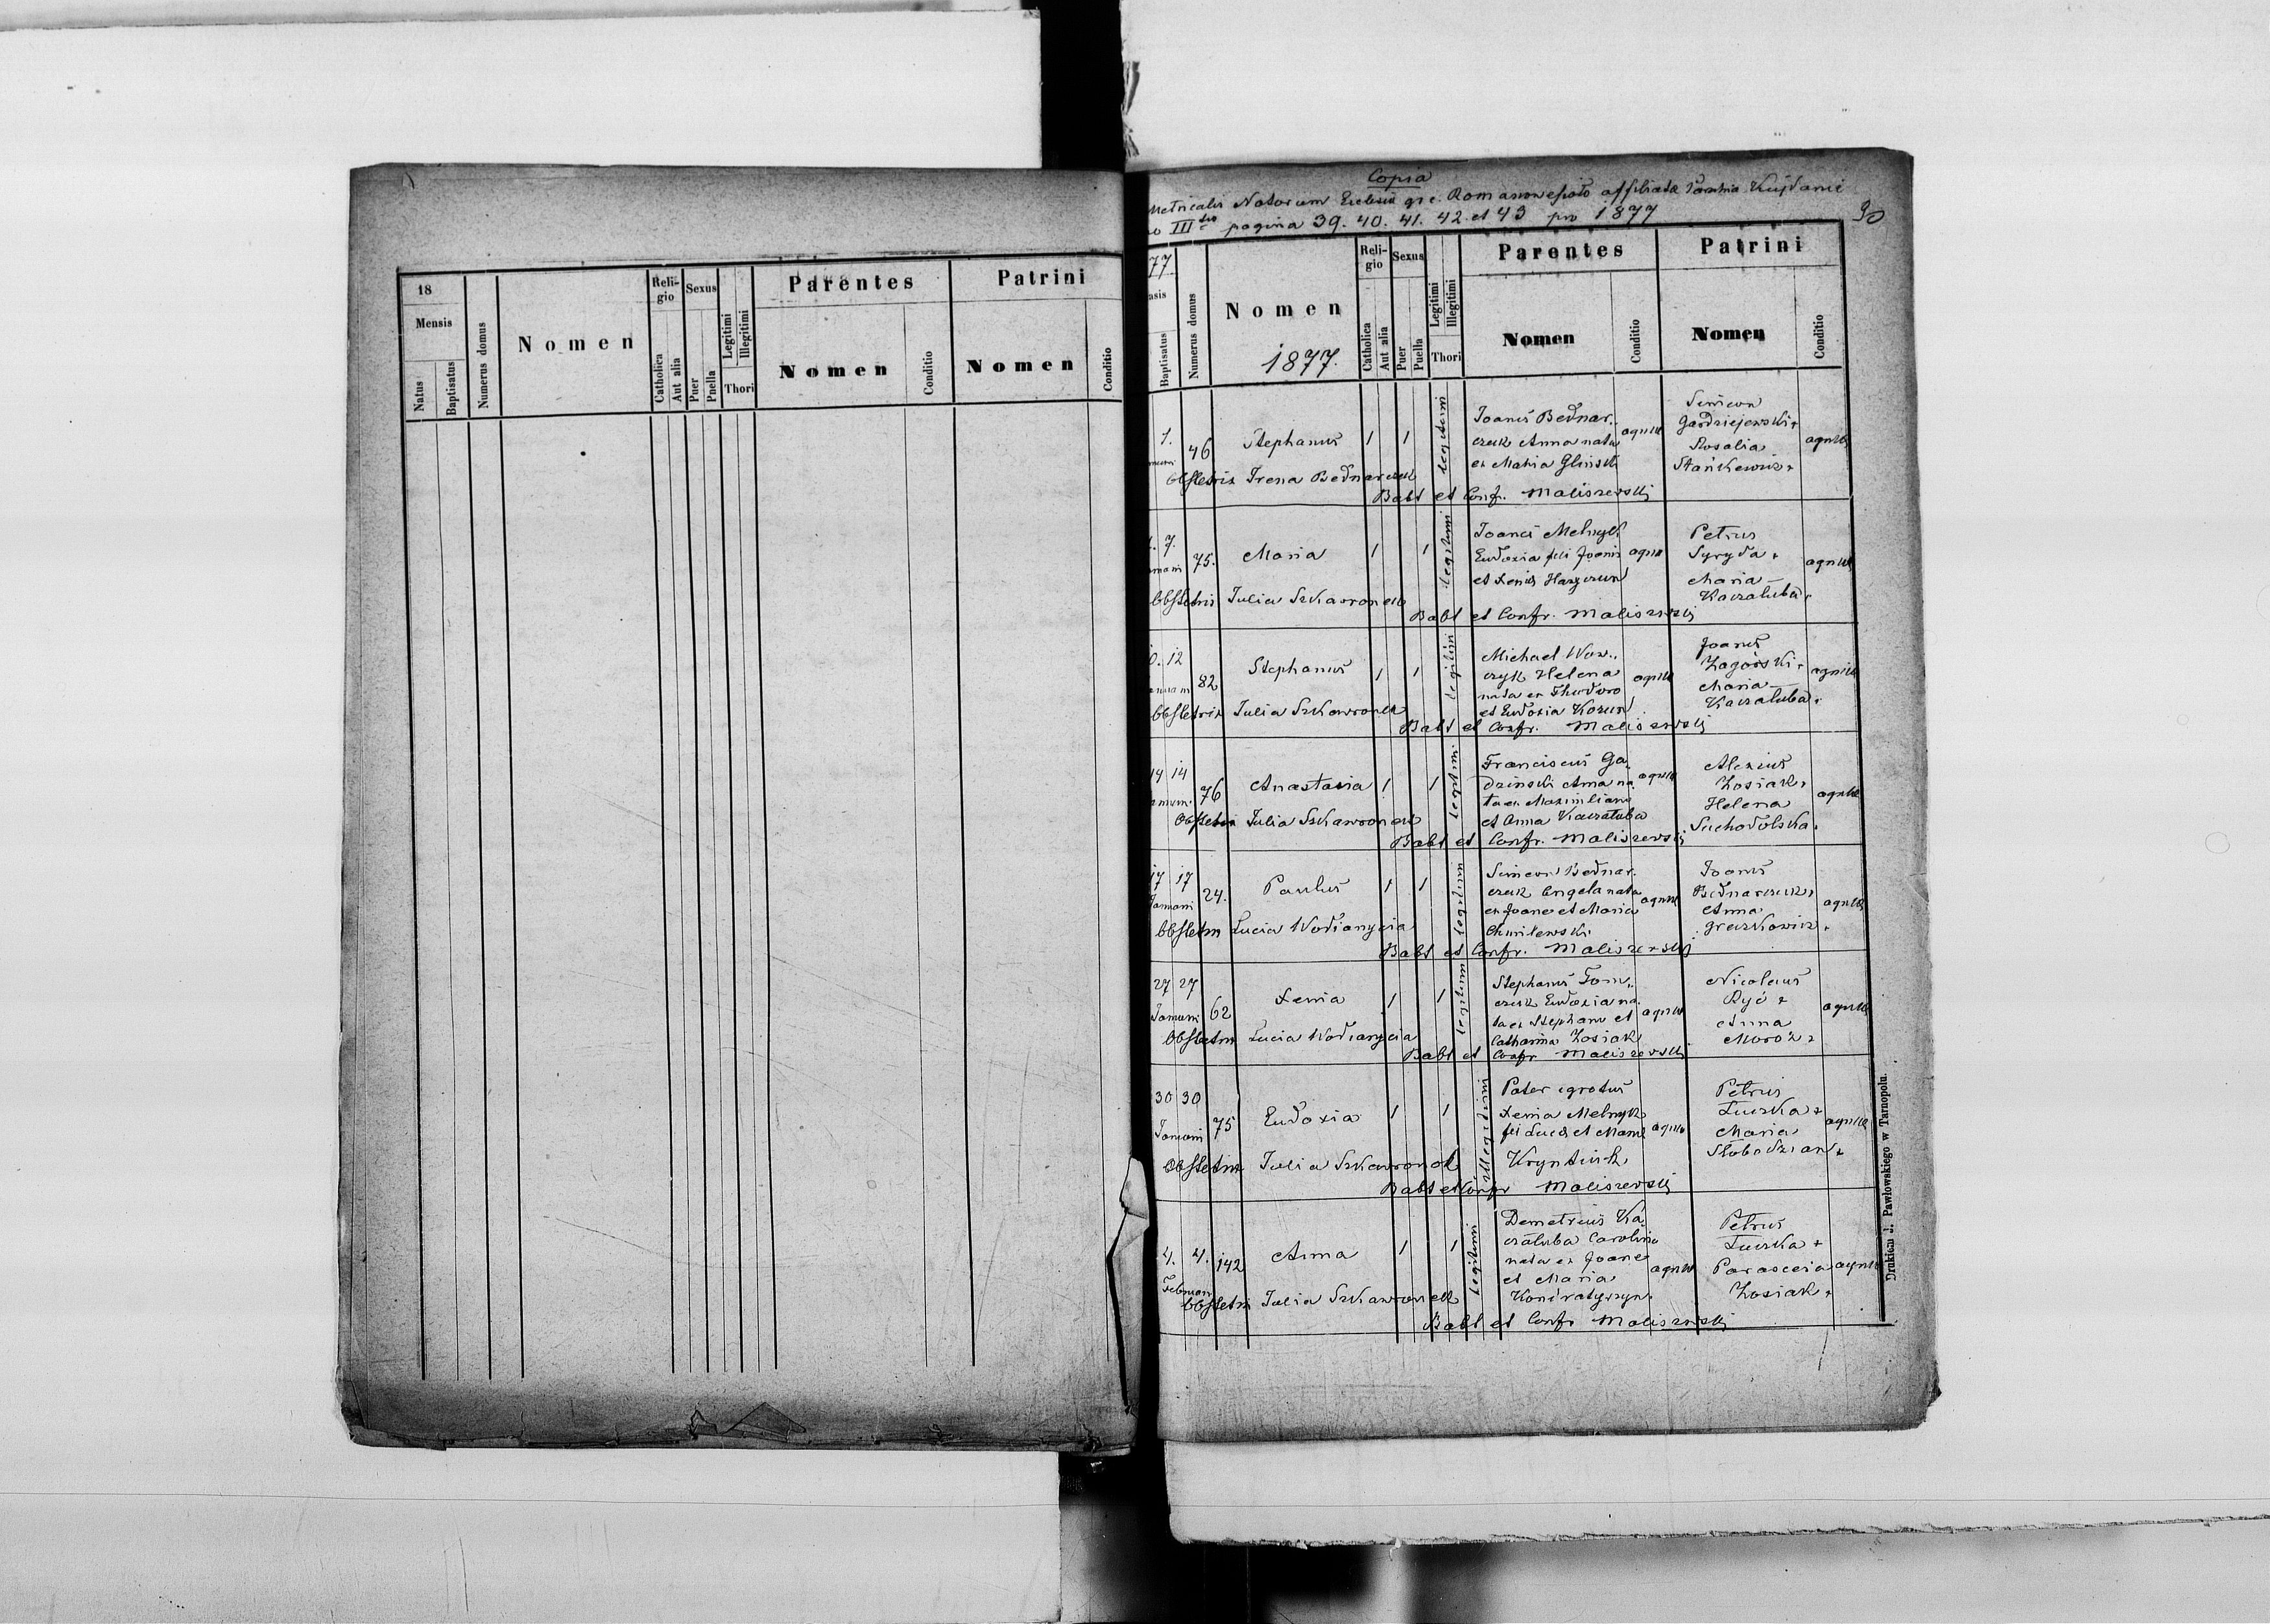 18
Mensis
Natus
Baptisatus
Numerus domus
Nomen
Religio
Catholica
Aut alia
Sexus
Puer
Puella
Legitimi
Illegitimi
Thori
Parentes
Nomen
Conditio
Patrini
Nomen
Conditio
Copia
Metricalis Natorum Ecclesiæ gr c. Romanowesioło affiliatæ Parochia Kujdanie
III pagina 39. 40. 41. 42. et 43 pro 1877
90
77.
Baptisatus
Numerus domus
Nomen
1877.
Religio
Catholica
Aut alia
Sexus
Puer
Puella
Legitimi
Illegitimi
Thori
Parentes
Nomen
Conditio
Patrini
Nomen
Conditio
1. 46 Stephanus 1 1 legitimi
Joanes Bednar-
czuk Anna nata
ex Maria Glinski
Simeon
Gardziejewski +
Rosalia
Stankewicz +
Obstetrix Irena Bednarczuk
Babt et Conf. Maliszewski
7. 75. Maria 1 1 legitimi
Joanes Melnyk
Eudoxia fili Joanis
et Xenia Harczun
Petrus
Syryda +
Maria
Kaczaluba +
Obstetrix Julia Szkawronek
Babt et Confr. Maliszewski
12 82 Stephanus 1 1 legitimi
Michael Waw-
czyk Helena
nata ex Theodoro
et Eudoxia Kozun
Joanes
Zagorski +
Maria
Kaczaluba +
Obstetrix Julia Szkawronek
Babt et Confr. Maliszewski
14 14 76 Anastasia 1 1 legitimi
Franciscus Ga-
dzinski Anna na
ta ex Maximiliano
et Anna Kaczaluba
Alexius
Zosiak +
Helena
Suchodolska +
Obstetrix Julia Szkawronek
Babt et Confr. Maliszewski
17 17 Januarii 24. Paulus 1 1 legitimi
Simeon Bednar-
czuk Angela nata
ex Joane et Maria
Chmilewski
Joanes
Bednarczuk +
Anna
Graczkowicz +
Obstetrix Lucia Wodianycia
Babt et Confr. Maliszewski
27 27 Januarii 62 Xenia 1 1 legitimi
Stephanus Tom-
czuk Eudoxia na
ta ex Stephano et
Catharina Zosiak
Nicolaus
Ryć +
Anna
Moróz +
Obstetrix Lucia Wodianycia
Babt et Confr Maliszewski
30 30 Januarii 75 Eudoxia 1 1 Illegitimi
Pater igrotus
Xenia Melnyk
fil Lucæ et Mariæ
Kryntiuk
Petrus
Łuczka +
Maria
Słobodzian +
Obstetrix Julia Szkawronek
Babt et Confr Maliszewski
4. 4. Februarii 142 Anna 1 1 legitimi
Demetrius Ka-
czaluba Carolina
nata ex Joane
et Maria
Kondratyszyn
Petrus
Łuczka +
Parascevia
Zosiak +
Obstetrix Julia Szkawronek
Babt et Confr Maliszewski
Drukiem J. Pawłowskiego w Tarnopolu.